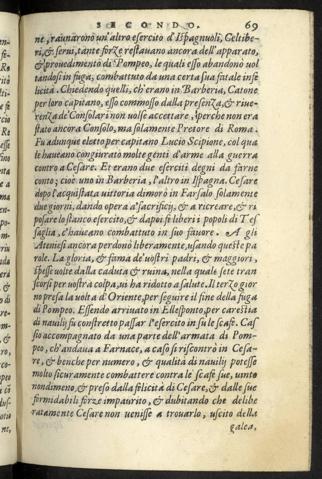 SECONDO. 69
ne, raunarono un'altro esercito d'Ispagnuoli, Celtibe-
ri, & serui, tante forze restauano ancora dell'apparato,
& prouedimento di Pompeo, le quali esso abandonò vol
tandosi in fuga, combattuto da una certa sua fatale infe
licità. Chiedendo quelli, ch'erano in Barberia, Catone
per loro capitano, esso commosso dalla presenza, & riue-
renza de' Consolari non uolse accettare, perche non era
stato ancora Consolo, ma solamente Pretore di Roma.
Fu adunque eletto per capitano Lucio Scipione, col qua
le haueano congiurato molte genti d'arme alla guerra
contro a Cesare. Et erano due eserciti degni da farne
conto; cioè uno in Barberia, l'altro in Ispagna. Cesare
dopo l'acquistata uittoria dimorò in Farsalo solamente
due giorni, dando opera a' sacrificij, & a ricreare, & ri
posare lo stanco esercito, & dapoi fe liberi i popoli di Tes
saglia, c'haueano combattuto in suo fauore. A gli
Ateniesi ancora perdonò liberamente, usando queste pa
role. La gloria, & fama de' uostri padri, & maggiori,
spesse uolte dalla caduta & ruina, nella quale sete tran
scorsi per uostra colpa, ui ha ridotto a salute. Il terzo gior
no presa la uolta d'Oriente, per seguire il fine della fuga
di Pompeo. Essendo arriuato in Ellesponto, per carestia
di nauilij fu constretto passar l'esercito in su le scafe. Cas
sio accompagnato da una parte dell'armata di Pom-
peo, ch'andaua a Farnace, a caso si riscontrò in Cesa-
re, & benche per numero, & qualità di nauilij potesse
molto sicuramente combattere contra le scafe sue, uinto
nondimeno, & preso dalla felicità di Cesare, & dalle sue
formidabili forze impaurito, & dubitando che delibe
ratamente Cesare non uenisse a trouarlo, uscito della
galea,